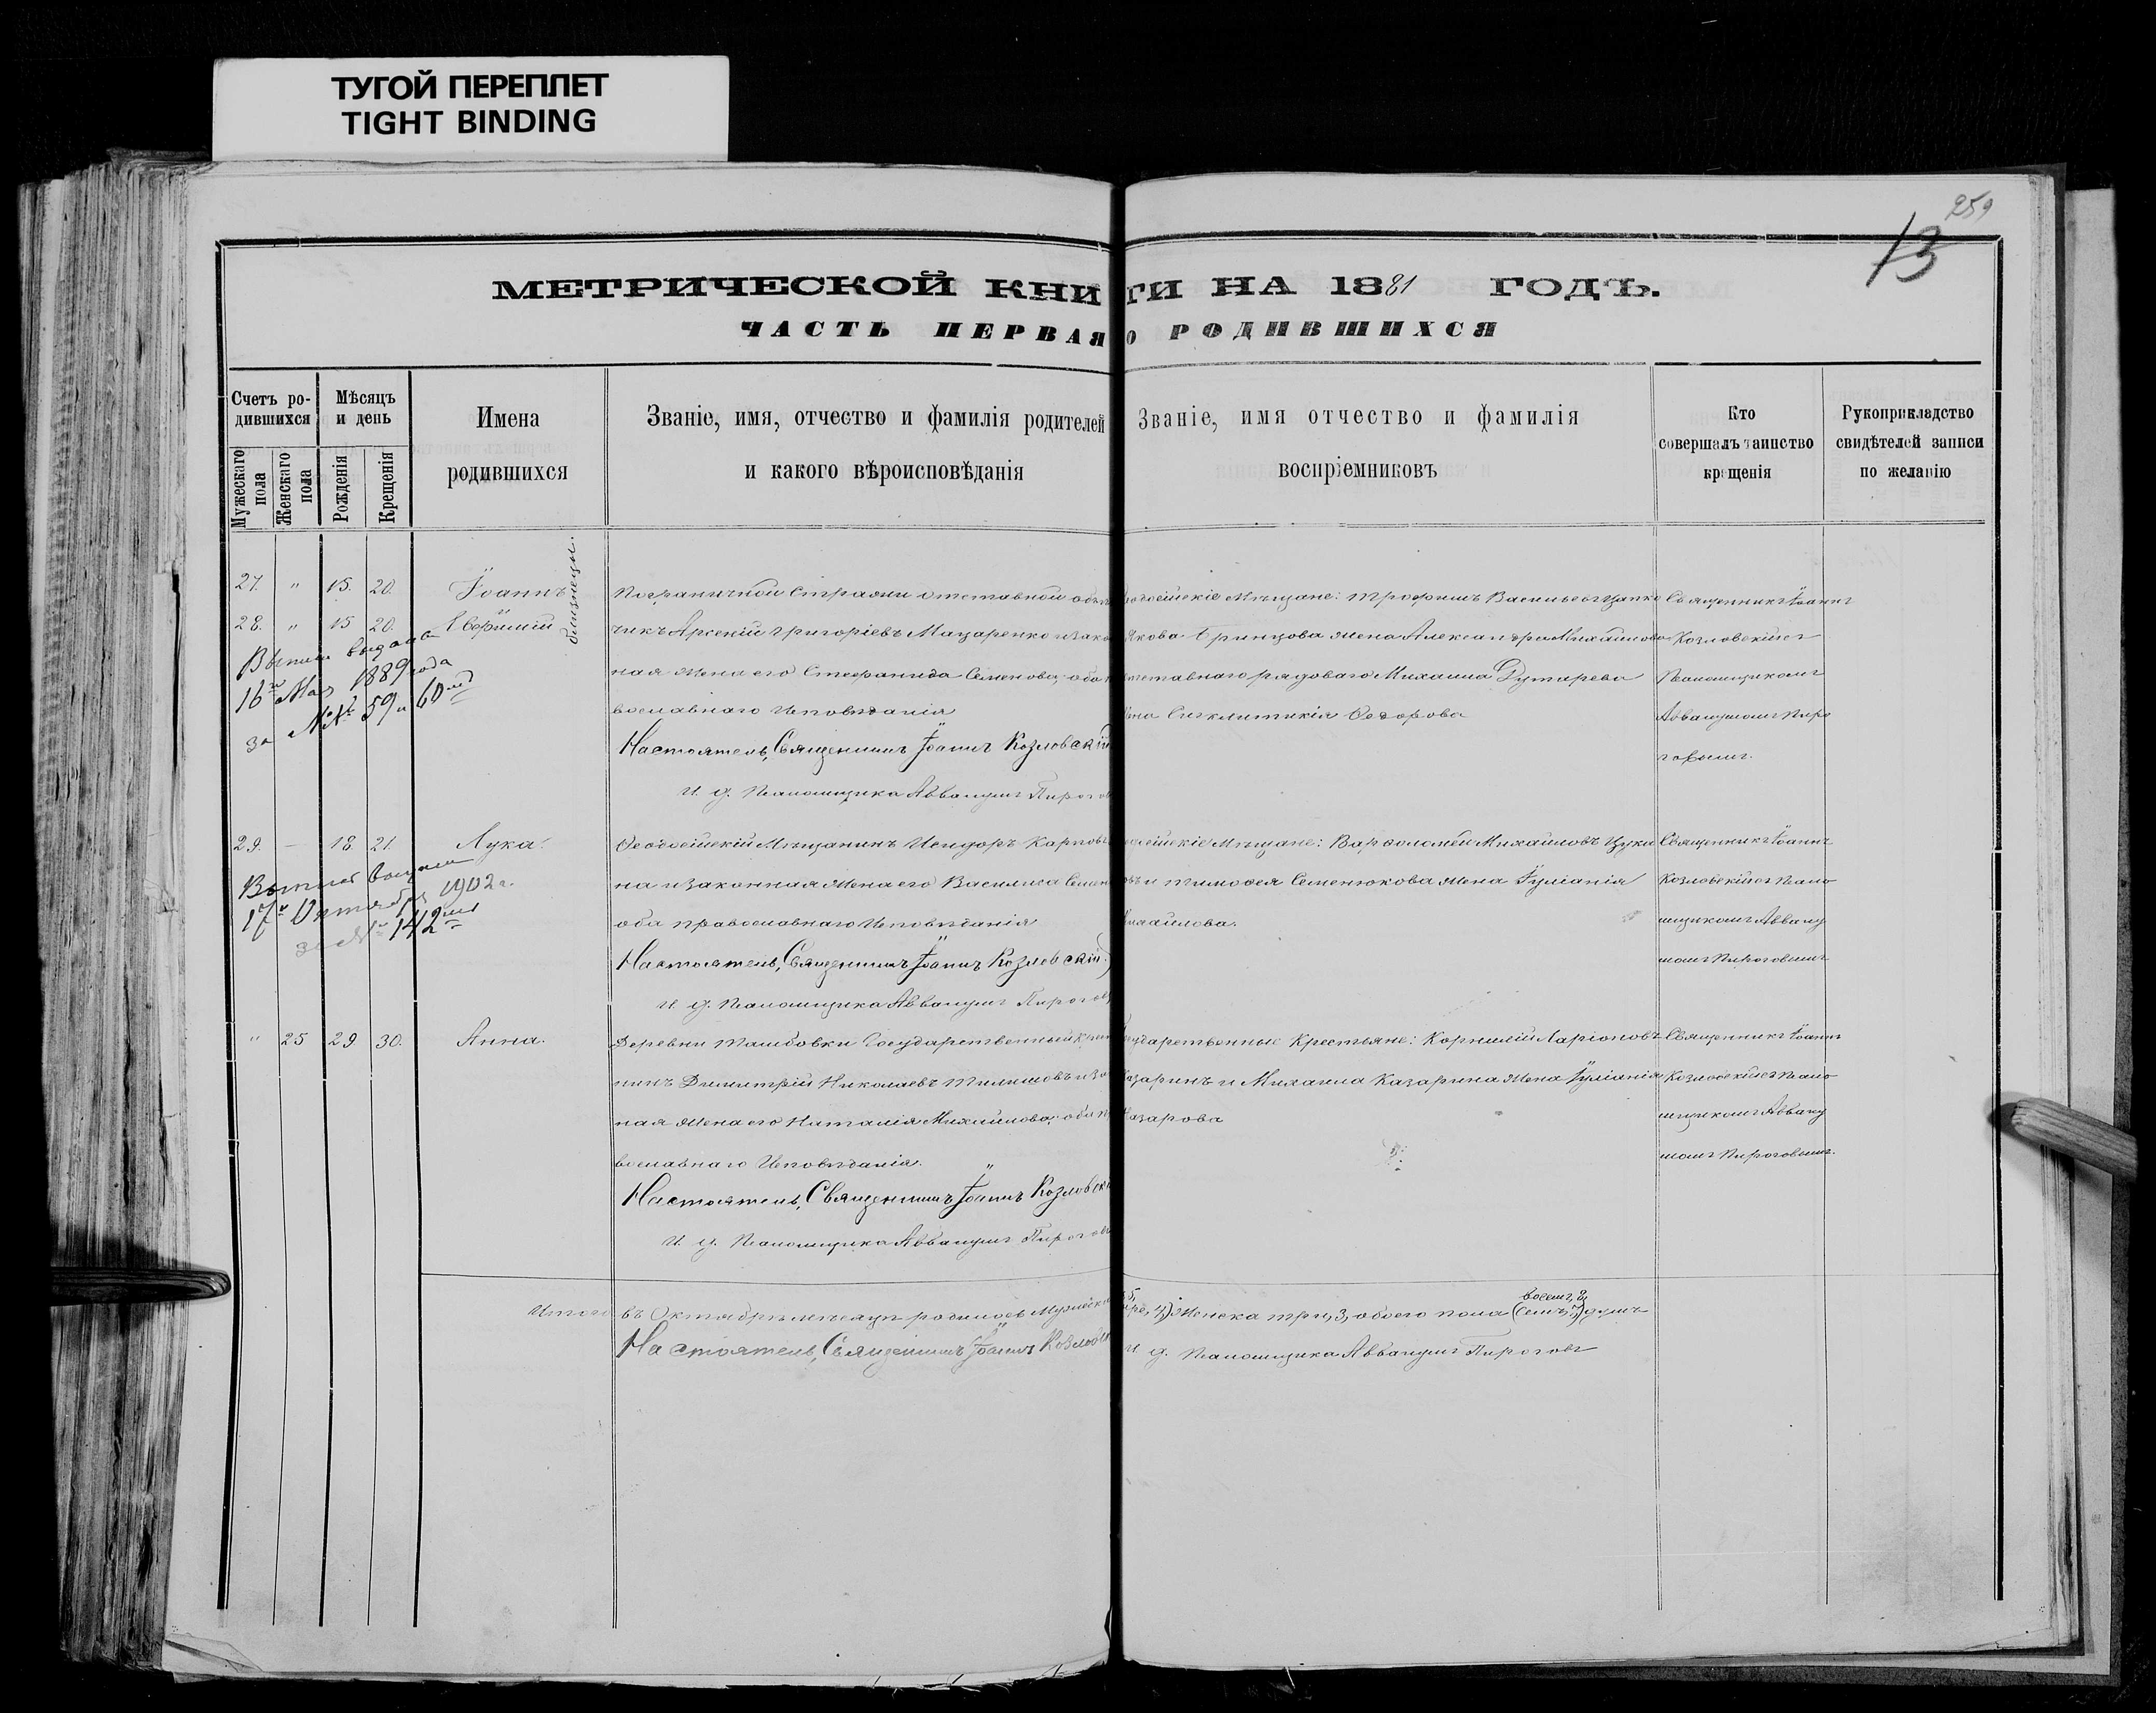 ТУГОЙ ПЕРЕПЛЕТ
TIGHT BINDING
259
13
МЕТРИЧЕСКОЙ КНИГИ НА 1881 ГОДЪ.
ЧАСТЬ ПЕРВАЯ О РОДИВШИХСЯ
Счетъ родившихся
Мужескаго пола
Женскаго пола
Мѣсяцъ и день
Рожденія
Крещенія
Имена родившихся
Званіе, имя, отчество и фамилія родителей
и какого вѣроисповѣданія
Званіе, имя отчество и фамилія
воспріемниковъ
Кто
совершалъ таинство
крещенія
Рукоприкладство
свидѣтелей записи
по желанію
27. " 15. 20. Іоаннъ
28. " 15 20. Евфимій
близнецы.
Выписи выдана
16го Мая 1889 года
за №№ 59 и 60мъ
Пограничной Стражи отставной объѣз
чикъ Арсеній Григоріевъ Мазаренко и зако
ная жена его Стефанида Семенова, оба п
вославнаго Исповѣданія
Настоятель, Священникъ Іоаннъ Козловскій
И. д. Псаломщика Аввакумъ Пирогов
одосійскіе Мѣщане: Трофимъ Васильевъ Цапко
Якова Бринцова жена Александра Михайлова
отставнаго рядоваго Михаила Дутарева
жена Синклитикія Ѳедорова
Священникъ Іоаннъ
Козловскій съ
Псаломщикомъ
Аввакумомъ Пиро
говымъ.
29. — 18 21. Лука.
Выпись выдана
17го Октября 1902 г.
за № 142мъ
Ѳеодосійскій Мѣщанинъ Исидоръ Карповъ
на и законная жена его Василиса Семен
оба православнаго Исповѣданія
Настоятель, Священникъ Іоаннъ Козловскій
И. д. Псаломщика Аввакумъ Пирогов
осійскіе Мѣщане: Варѳоломей Михайловъ Цука
овъ и Тимоѳея Семенюкова жена Іуліанія
Михайлова.
Священникъ Іоаннъ
Козловскій съ Псало
мщикомъ Авваку
момъ Пироговымъ
" 25 29 30. Анна.
Деревни Тамбовки Государственный крест
нинъ Димитрій Николаевъ Тилишовъ и зако
ная жена его Наталія Михайлова, оба пр
вославнаго Исповѣданія.
Настоятель, Священникъ Іоаннъ Козловскі
И. д. Псаломщика Аввакумъ Пирогов
сударственные Крестьяне: Корнилій Ларіоновъ
Казаринъ и Михаила Казарина жена Іуліанія
Назарова
Священникъ Іоаннъ
Козловскій съ Псало
мщикомъ Авваку
момъ Пироговымъ.
Итого въ Октябрѣ мѣсяцѣ родилось Мужеска
ре, 4) Женска три, 3, обоего пола (семь, 7) душъ
восемь, 8,
Настоятель, Священникъ Іоаннъ Козловск
И д. Псаломщика Аввакумъ Пироговъ